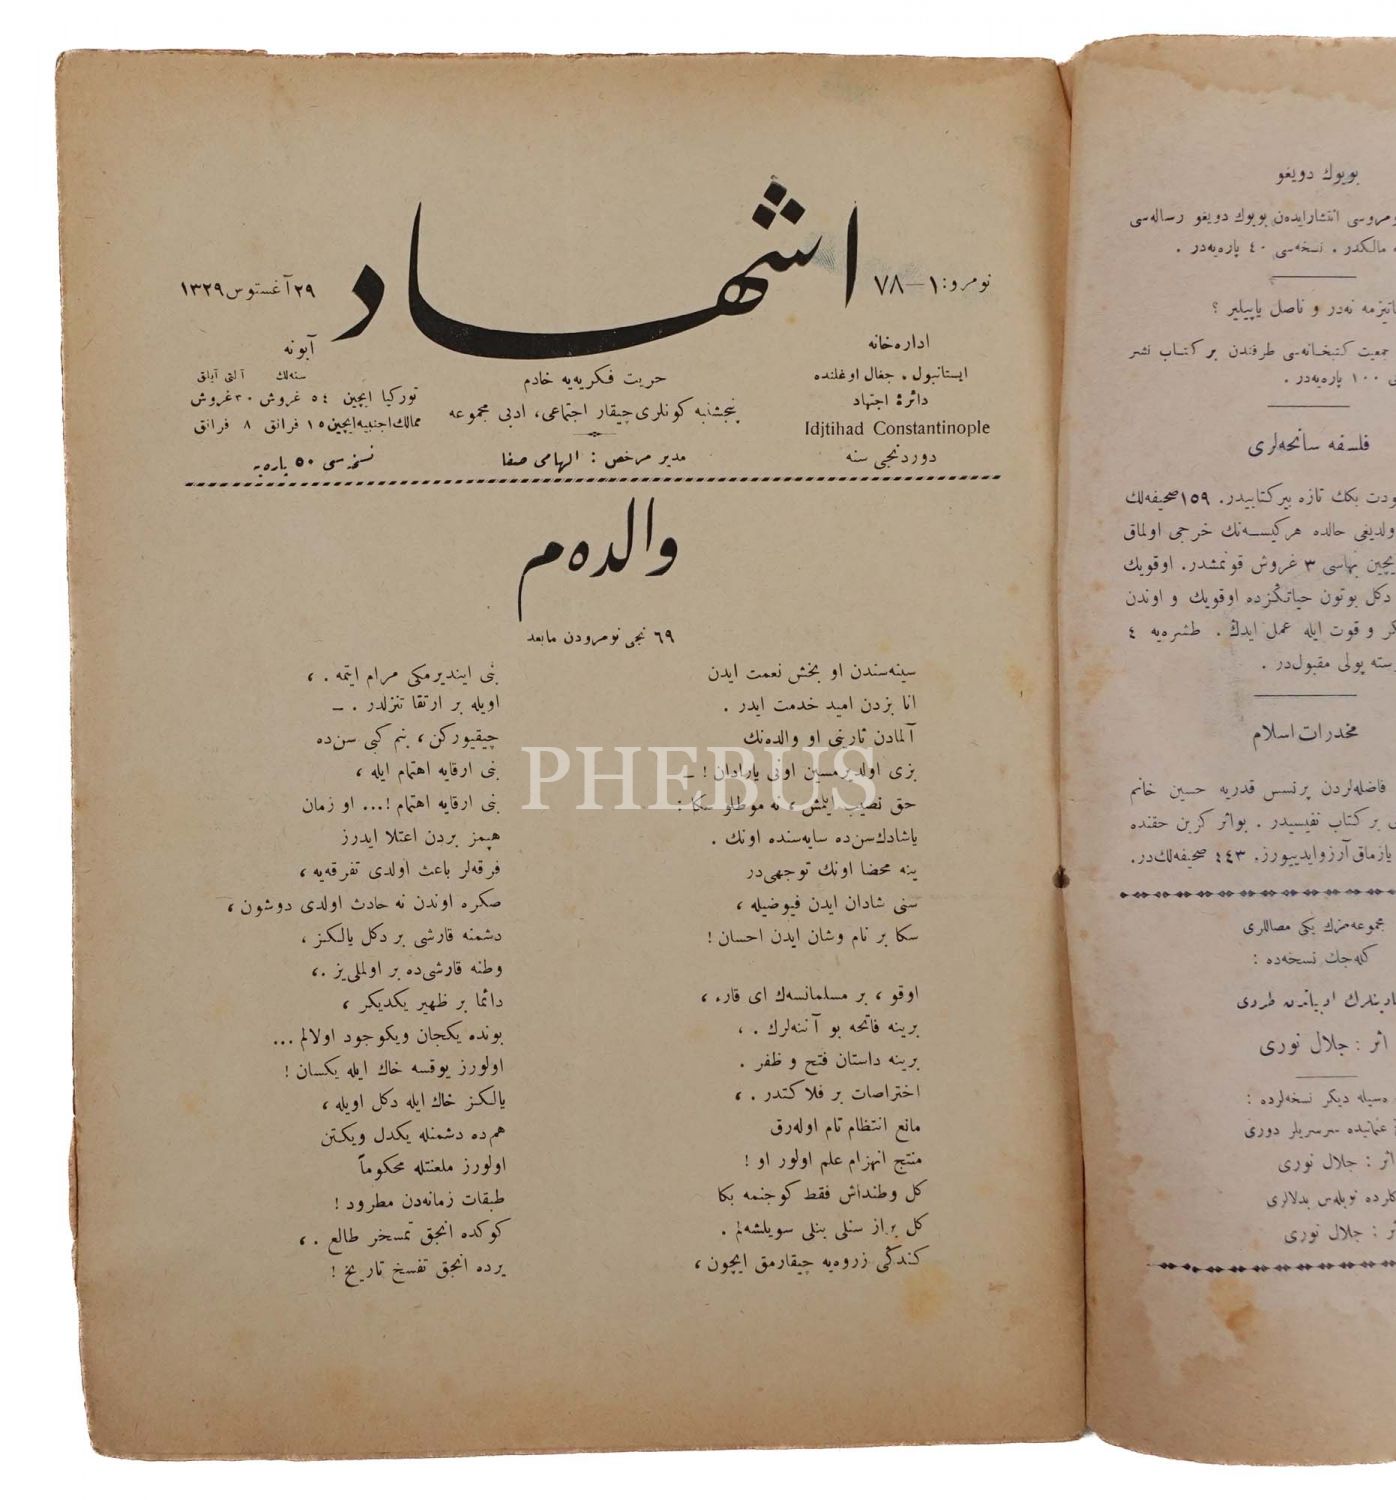 اشهاد
نومرو: ١—٧٨
٢٩ آغستوس ١٣٢٩
اداره‌خانه
ایستانبول . جغال اوغلنده
دائرۀ اجتهاد
Idjtihad Constantinople
دوردنجی سنه
حریت فکریه‌یه خادم
پنجشنبه کونلری چیقار اجتماعی، ادبی مجموعه
مدیر مرخص : الهامی صفا
آبونه
سنه‌لك آلتی آیلق
تورکیا ایچین ٥٤ غروش ٣٠ غروش
ممالك اجنبیه ایچین ١٥ فرانق ٨ فرانق
نسخه‌سی ٥٠ پاره‌یه
والده‌م
٦٩ نجی نومرودن مابعد
سینه‌سندن او بخش نعمت ایدن
انا بزدن امید خدمت ایدر .
آلمادن ثارینی او والده‌نك
بزی اولدیرمسین اونی یارادان ! —
حق نصیب ایتمش ، نه موطلو سکا :
یاشادك سن‌ده سایه‌سنده اونك .
ینه محضا اونك توجهی‌در
سنی شادان ایدن فیوضیله ،
سکا بر نام وشان ایدن احسان !
اوقو ، بر مسلمانسه‌ك ای قارء ،
برینه فاتحه بو آننه‌لرك . ،
برینه داستان فتح و ظفر .
اختراصات بر فلاکتدر . ،
مانع انتظام تام اوله‌رق
منتج انهزام علم اولور او !
کل وطنداش فقط کوجنمه بکا
کل براز سنلی بنلی سویلشه‌لم .
کندکی زروه‌یه چیقارمق ایچون ،
بنی ایندیرمکی مرام ایتمه . ،
اویله بر ارتقا تنزلدر . —
چیقیورکن ، بنم کبی سن‌ده
بنی ارقایه اهتمام ایله ،
بنی ارقایه اهتمام !... او زمان
هپمز بردن اعتلا ایدرز
فرقه‌لر باعث اولدی تفرقه‌یه ،
صکره اوندن نه حادث اولدی دوشون ،
دشمنه قارشی بر دکل یالکز ،
وطنه قارشی‌ده بر اولملی‌یز . ،
دائما بر ظهیر یکدیکر ،
بونده یکجان ویکوجود اولالم ...
اولورز یوقسه خاك ایله یکسان !
یالکز خاك ایله دکل اویله ،
هم‌ده دشمنله یکدل ویکتن
اولورز ملعنتله محکوماً
طبقات زمانه‌دن مطرود !
کوکده انجق تمسخر طالع . ،
یرده انجق تفسخ تاریخ !
PHEBUS
بویوك دویغو
انتشار ایده‌ن بویوك دویغو رساله‌سی
مالکدر . نسخه‌سی ٤٠ پاره‌یه‌در .
نه‌در و ناصل یاپیلیر ؟
جمعیت کتبخانه‌سی طرفندن بر کتاب نشر
١٠٠ پاره‌یه‌در .
فلسفه سانحه‌لری
بکك تازه بیر کتابیدر. ١٥٩ صحیفه‌لك
حالده هرکیسه‌نك خرجی اولماق
بهاسی ٣ غروش قونمشدر. اوقویك
دکل بوتون حیاتکزده اوقویك و اوندن
و قوت ایله عمل ایدك . طشره‌یه ٤
پولی مقبول‌در .
مخدرات اسلام
فاضله‌لردن پرنسس قدریه حسین خانم
بر کتاب نفیسیدر . بواثر کزین حقنده
یازماق آرزو ایدییورز. ٤٤٣ صحیفه‌لك‌در.
مجموعه‌مزك یکی مصاللری
کله‌جك نسخه‌ده :
اثر : جلال نوری
دیکر نسخه‌لرده :
عثمانیده سرسریلر دوری
اثر : جلال نوری
جلال نوری